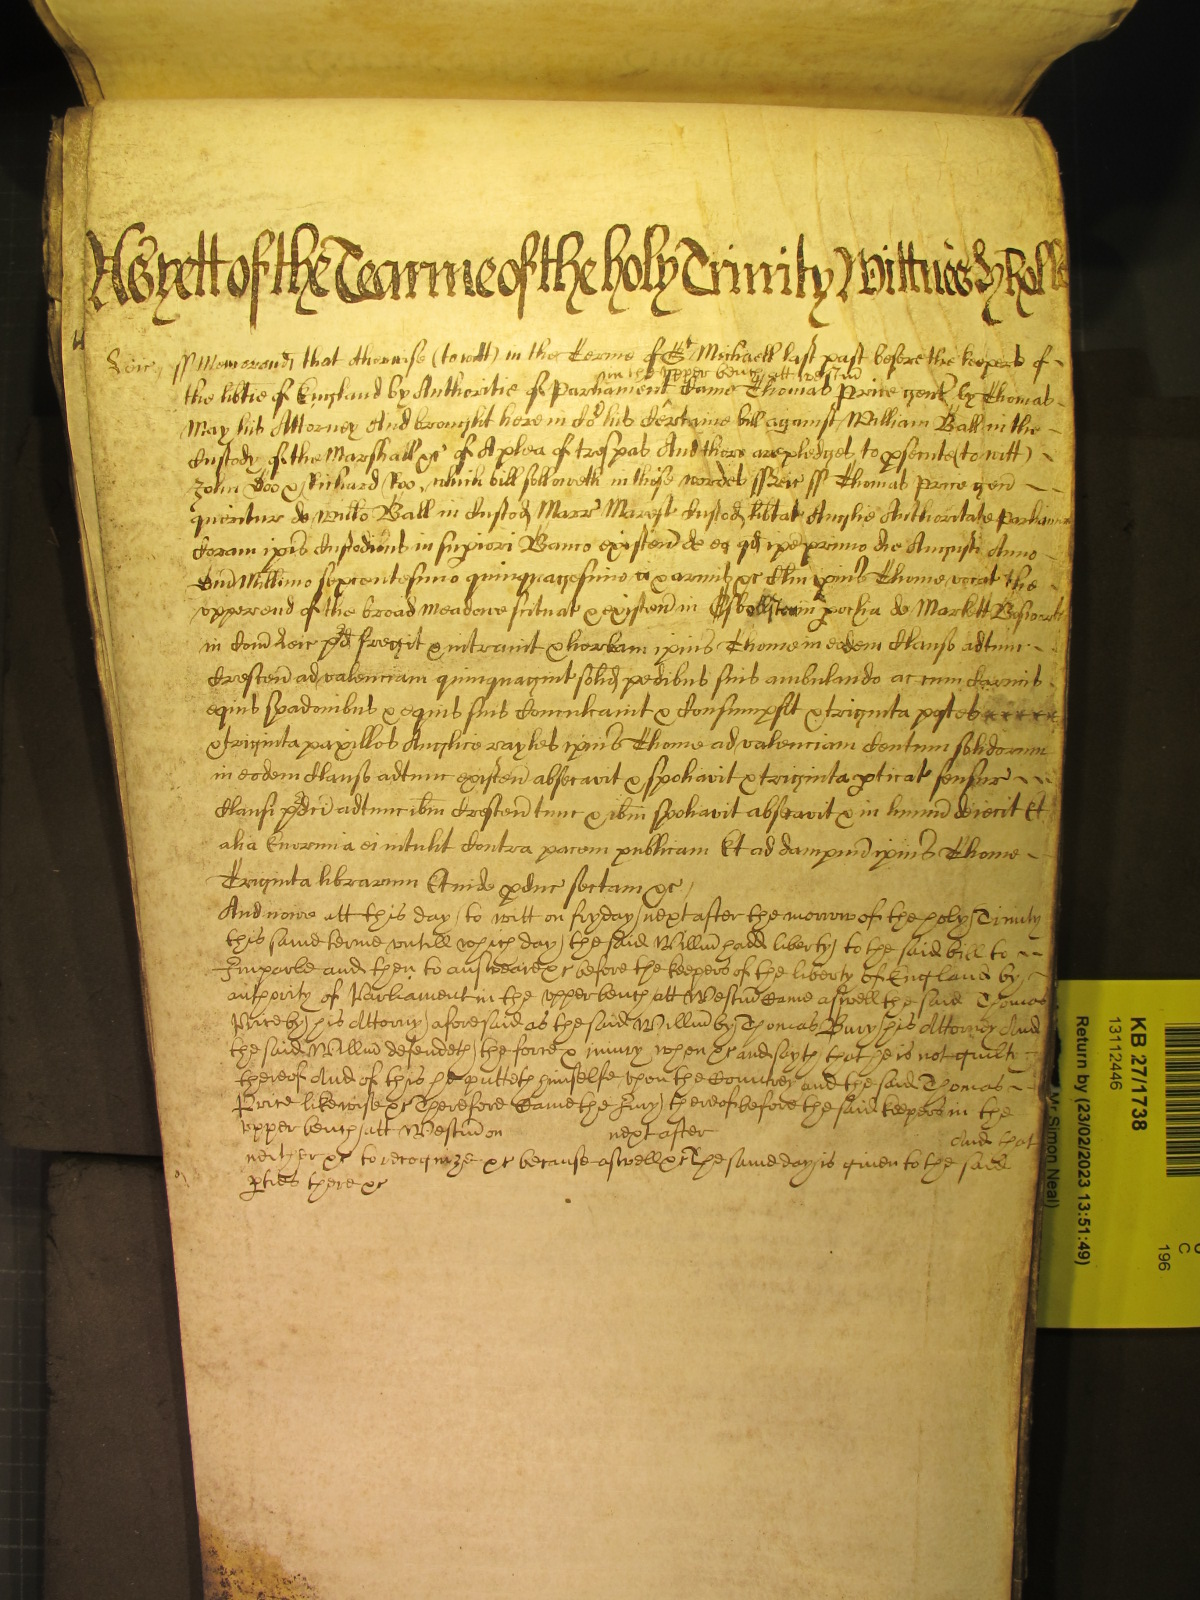 As yett of the Tearme of the holy Trinity Wittnes Hy Rolle
Leic ss Memorand that otherwise (to witt) in the terme of St Michaell last past before the keepers of
in the upper bench att Westm
the libtie of England by Authoritie of Parliament Came Thomas Price gent by Thomas
May his Attorney And brought here in Co't his Certaine bill against William Ball in the
Custody of the Marshall &c of A plea of trespas And there are pledges to psente (to witt)
John Doo & Richard Roo, which bill followeth in these wordes ss Leic ss Thomas Price gen
queritur de Willo Ball in Custod Marr Marest Custod libtat Anglie Authoritate Parliamen
Coram ipis Custodibus in supiori Banco existen de eo qd ipe primo die Augusti Anno
Dni Millimo sexcentesimo quinquagesimo vi & armis &c Clm ipius Thome vocat the
upper end of the broad meadowe scituat & existen in pochia de Markett Bosworth
in Com Leic pd fregit & intravit & herbam ipius Thome in eodem Clauso adtunc
Crescen ad valenciam quinquagint solid pedibus suis ambulando ac cum Carucis
equis spadonibus & equis suis Conculcavit & Consumpsit & triginta postes
& triginta paxillos Anglice rayles ipius Thome ad valenciam Centum solidorum
in eodem Clauso adtunc existen absecavit & spoliavit & triginta pticat fensur
Clausi pdci adtunc ibm Crescen tunc & ibm spoliavit absecavit & in humu deiecit Et
alia Enormia ei intulit Contra pacem publicam Et ad dampnu ipius Thome
Triginta librarum Et inde pduc sectam &c
And nowe att this day (to witt on fryday next after the morrow of the holy Trinity
this same terme untill which day the said Willm hadd liberty to the said bill to
Imparle and then to answeare &c before the keepers of the liberty of England by
authority of Parliament in the upper bench att Westm Came aswell the said Thomas
Price by his Attorny aforesaid as the said Willm by Thomas Bury his Attorney And
the said Willm defendeth the force & iniury when &c and sayth that he is not guilti
thereof And of this he putteth himselfe upon the Countrey and the said Thomas
Price likewise &c Therefore Came the Jury thereof before the said keepers in the
upper bench att Westm on next after And that
neither &c to recognize &c because aswell &c The same day is given to the said
pties there &c
KB 27/1738
13112446
Return by (23/02/2023 13:51:49)
Mr Simon Neal)
C
196